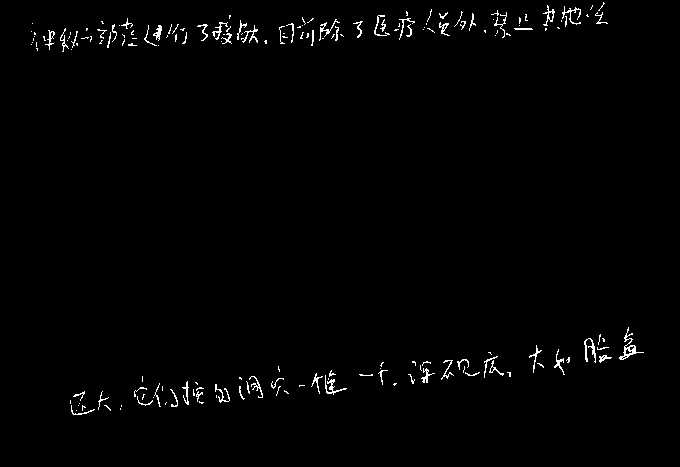 神秘的部落进行了接触,目前除了医疗人员外,禁止其他任
还大,它们挖的洞穴一堆一个,深不见底,大如脸盆